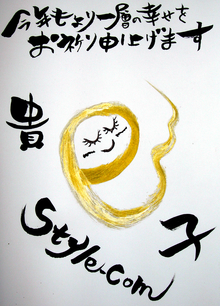 今年もより一層の幸せを
お祈り申上げます
貴
e
子
Style.com